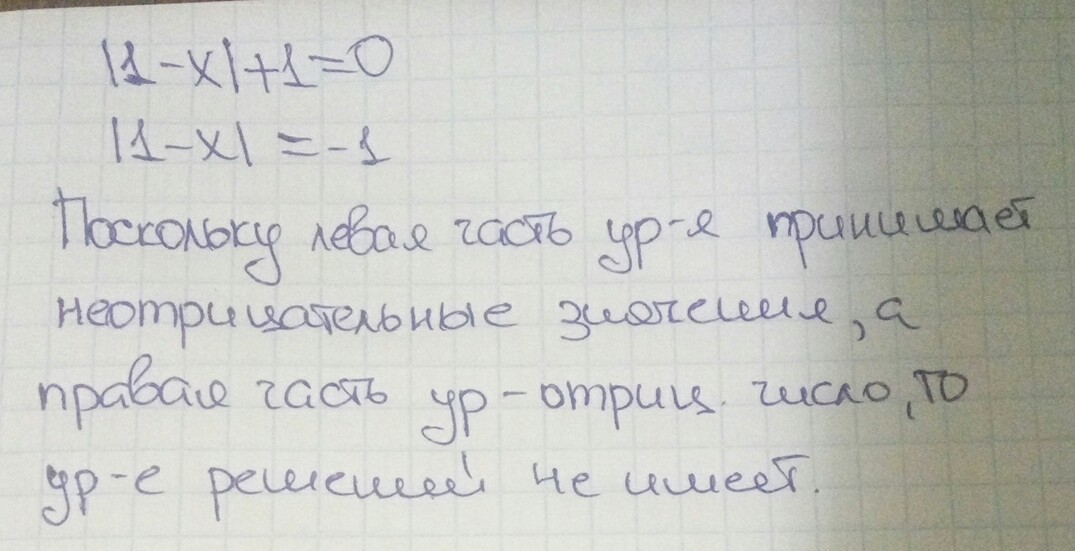 |1-x|+1=0
|1-x| = -1
Поскольку левая часть ур-я принимает
неотрицательные значения, а
правая часть ур - отриц. число, то
ур-е решений не имеет.